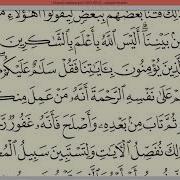 فَتَنَّا بَعْضَهُم بِبَعْضٍ لِّيَقُولُوٓا۟ أَهَٰٓؤُلَآءِ
مِّنۢ بَيْنِنَآ ۗ أَلَيْسَ ٱللَّهُ بِأَعْلَمَ بِٱلشَّٰكِرِينَ
ٱلَّذِينَ يُؤْمِنُونَ بِـَٔايَٰتِنَا فَقُلْ سَلَٰمٌ عَلَيْكُمْ
عَلَىٰ نَفْسِهِ ٱلرَّحْمَةَ ۖ أَنَّهُۥ مَنْ عَمِلَ
ثُمَّ تَابَ مِنۢ بَعْدِهِۦ وَأَصْلَحَ فَأَنَّهُۥ غَفُورٌ
نُفَصِّلُ ٱلْـَٔايَٰتِ وَلِتَسْتَبِينَ سَبِيلُ